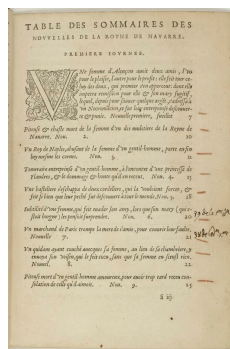 TABLE DES SOMMAIRES DES
NOVVELLES DE LA ROYNE DE NAVARRE.
PREMIERE IOVRNEE.
VNe femme d'Alençon auoit deux amis, l'vn
pour le plaisir, l'autre pour le proufit: elle feit tuer ce-
luy des deux, qui premier s'en apperceut: dont elle
impetra remission pour elle & son mary fugitif,
lequel, depuis pour sauuer quelque argẽt, s'adressa à
vn Necromancien, & fut leur entreprise descouuer-
te & punie. Nouuelle premiere, fueillet 7
Piteuse & chaste mort de la femme d'vn des muletiers de la Royne de
Nauarre. Nou. 2. 10
Vn Roy de Naples, abusant de la femme d'vn gentil-homme, porte en fin
luy mesme les cornes. Nou. 3. 12
Temeraire entreprinse d'vn gentil-homme, à l'encontre d'vne princesse de
Flandres, & le dommage & honte qu'il en receut. Nou. 4.
Vne basteliere s'eschappa de deux cordeliers, qui la vouloient forcer, &
feit si bien que leur peché fut descouuert à tout le monde. Nou. 5. 18
Subtilité d'vne femme, qui feit euader son amy, lors que son mary (qui e-
stoit borgne) les pensoit surprendre. Nou. 6. 20
Vn marchand de Paris trompe la mere de s'amie, pour couurir leur faulte,
Nouuelle 7. 21
Vn quidam ayant couché auecques sa femme, au lieu de sa chambriere, y
enuoya son voisin, qui le feit cocu, sans que sa femme en sceust rien.
Nouuel. 8. 22
Piteuse mort d'vn gentil-homme amoureux, pour auoir trop tard receu con-
solation de celle qu'il aimoit. Nou. 9. 25